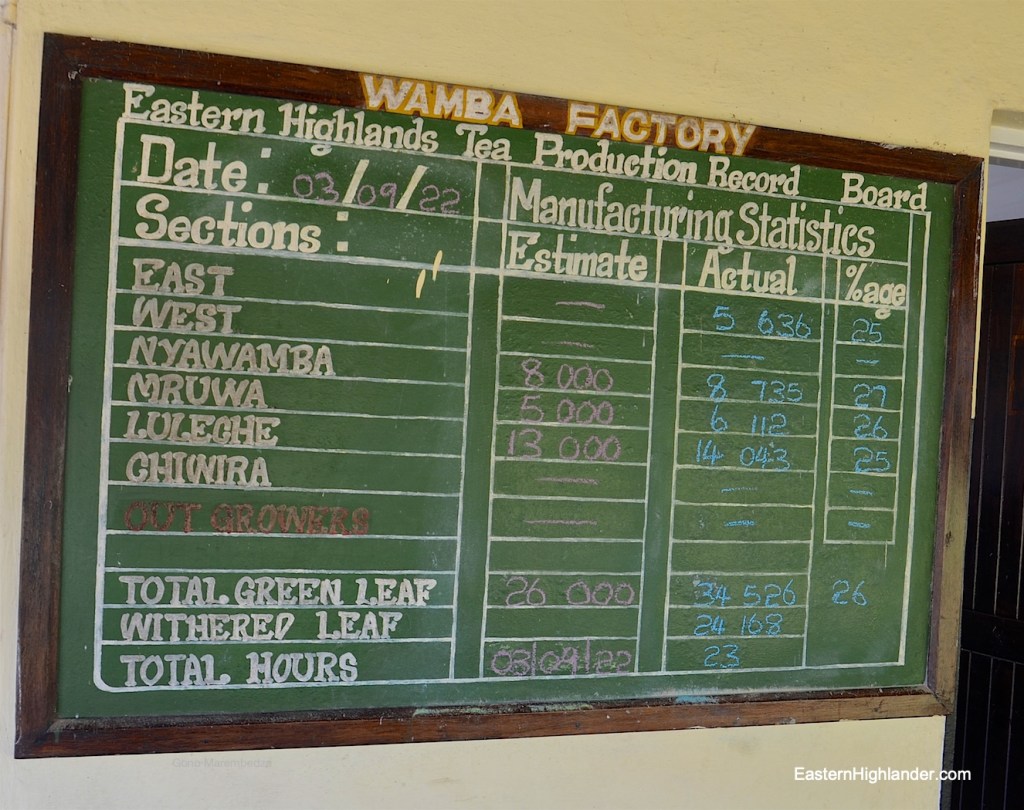 WAMBA FACTORY
Eastern Highlands Tea Production Record Board
Date : 03/09/22 Manufacturing Statistics
Sections : Estimate Actual %age
EAST — 5 636 25
WEST — — —
NYAWAMBA 8 000 8 735 27
MRUWA 5 000 6 112 26
LULECHE 13 000 14 043 25
CHIWIRA — — —
OUT GROWERS — — —
TOTAL GREEN LEAF 26 000 34 526 26
WITHERED LEAF 24 168
TOTAL HOURS 03/09/22 23
EasternHighlander.com